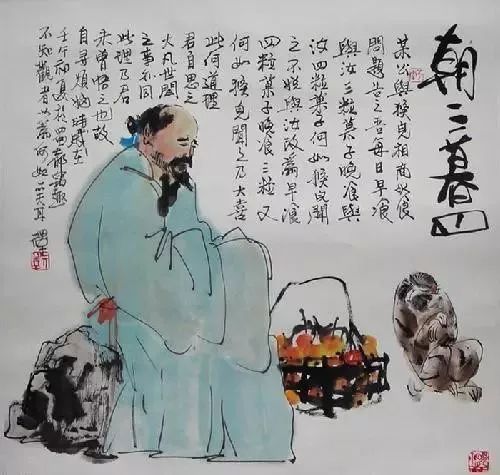 朝三暮四
某公與猴兒相商飲食
問題告之吾每日早飡
與汝三粒菓子晚飡與
汝四粒菓子何如猴兒聞
之不悅與汝改爲早飡
四粒菓子晚飡三粒又
何如猴兒聞之乃大喜
此何道理
君自思之
大凡世間
之事不同
此理乃君
未曾悟之也故
自尋煩惱
壬午初夏於
不知觀者以爲何如